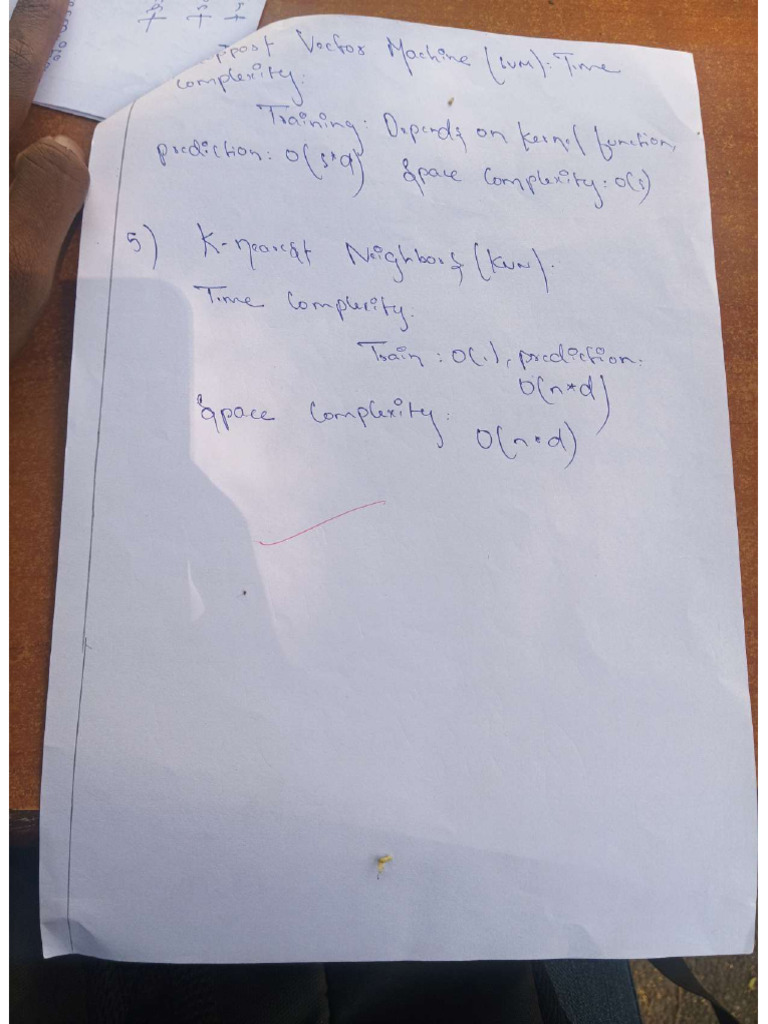 Vector Machine (SVM): Time
complexity:
Training: Depends on kernel function,
prediction: O(s*d) Space complexity: O(s)
5) K-nearest Neighbors (KNN).
Time complexity:
Train: O(1), prediction:
O(n*d)
Space complexity:
O(n*d)